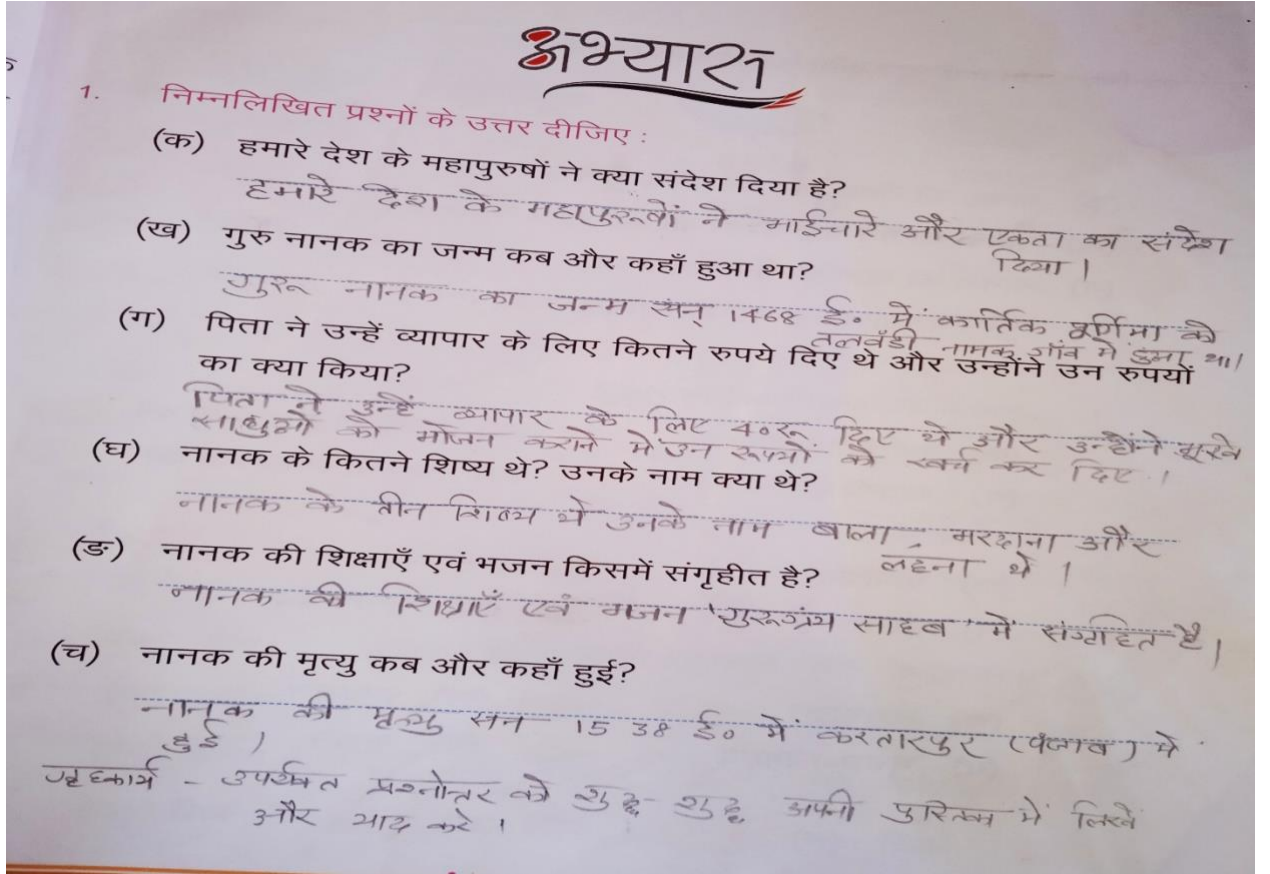 अभ्यास
1. निम्नलिखित प्रश्नों के उत्तर दीजिए :
(क) हमारे देश के महापुरुषों ने क्या संदेश दिया है?
हमारे देश के महापुरूषों ने भाईचारे और एकता का संदेश
दिया।
(ख) गुरु नानक का जन्म कब और कहाँ हुआ था?
गुरू नानक का जन्म सन् 1468 ई० में कार्तिक पूर्णिमा को
तलवंडी नामक गाँव में हुआ था।
(ग) पिता ने उन्हें व्यापार के लिए कितने रुपये दिए थे और उन्होंने उन रुपयों
का क्या किया?
पिता ने उन्हें व्यापार के लिए 40रू दिए थे और उन्होंने भूखे
साधुओं को भोजन कराने में उन रूपयों को खर्च कर दिए।
(घ) नानक के कितने शिष्य थे? उनके नाम क्या थे?
नानक के तीन शिष्य थे उनके नाम बाला, मरदाना और
लहना थे।
(ङ) नानक की शिक्षाएँ एवं भजन किसमें संगृहीत है?
नानक की शिक्षाएँ एवं भजन 'गुरूग्रंथ साहब' में संग्रहित है।
(च) नानक की मृत्यु कब और कहाँ हुई?
नानक की मृत्यु सन 1538 ई० में करतारपुर (पंजाब) में
हुई।
गृहकार्य - उपर्युक्त प्रश्नोत्तर को शुद्ध-शुद्ध अपनी पुस्तिका में लिखें
और याद करे।